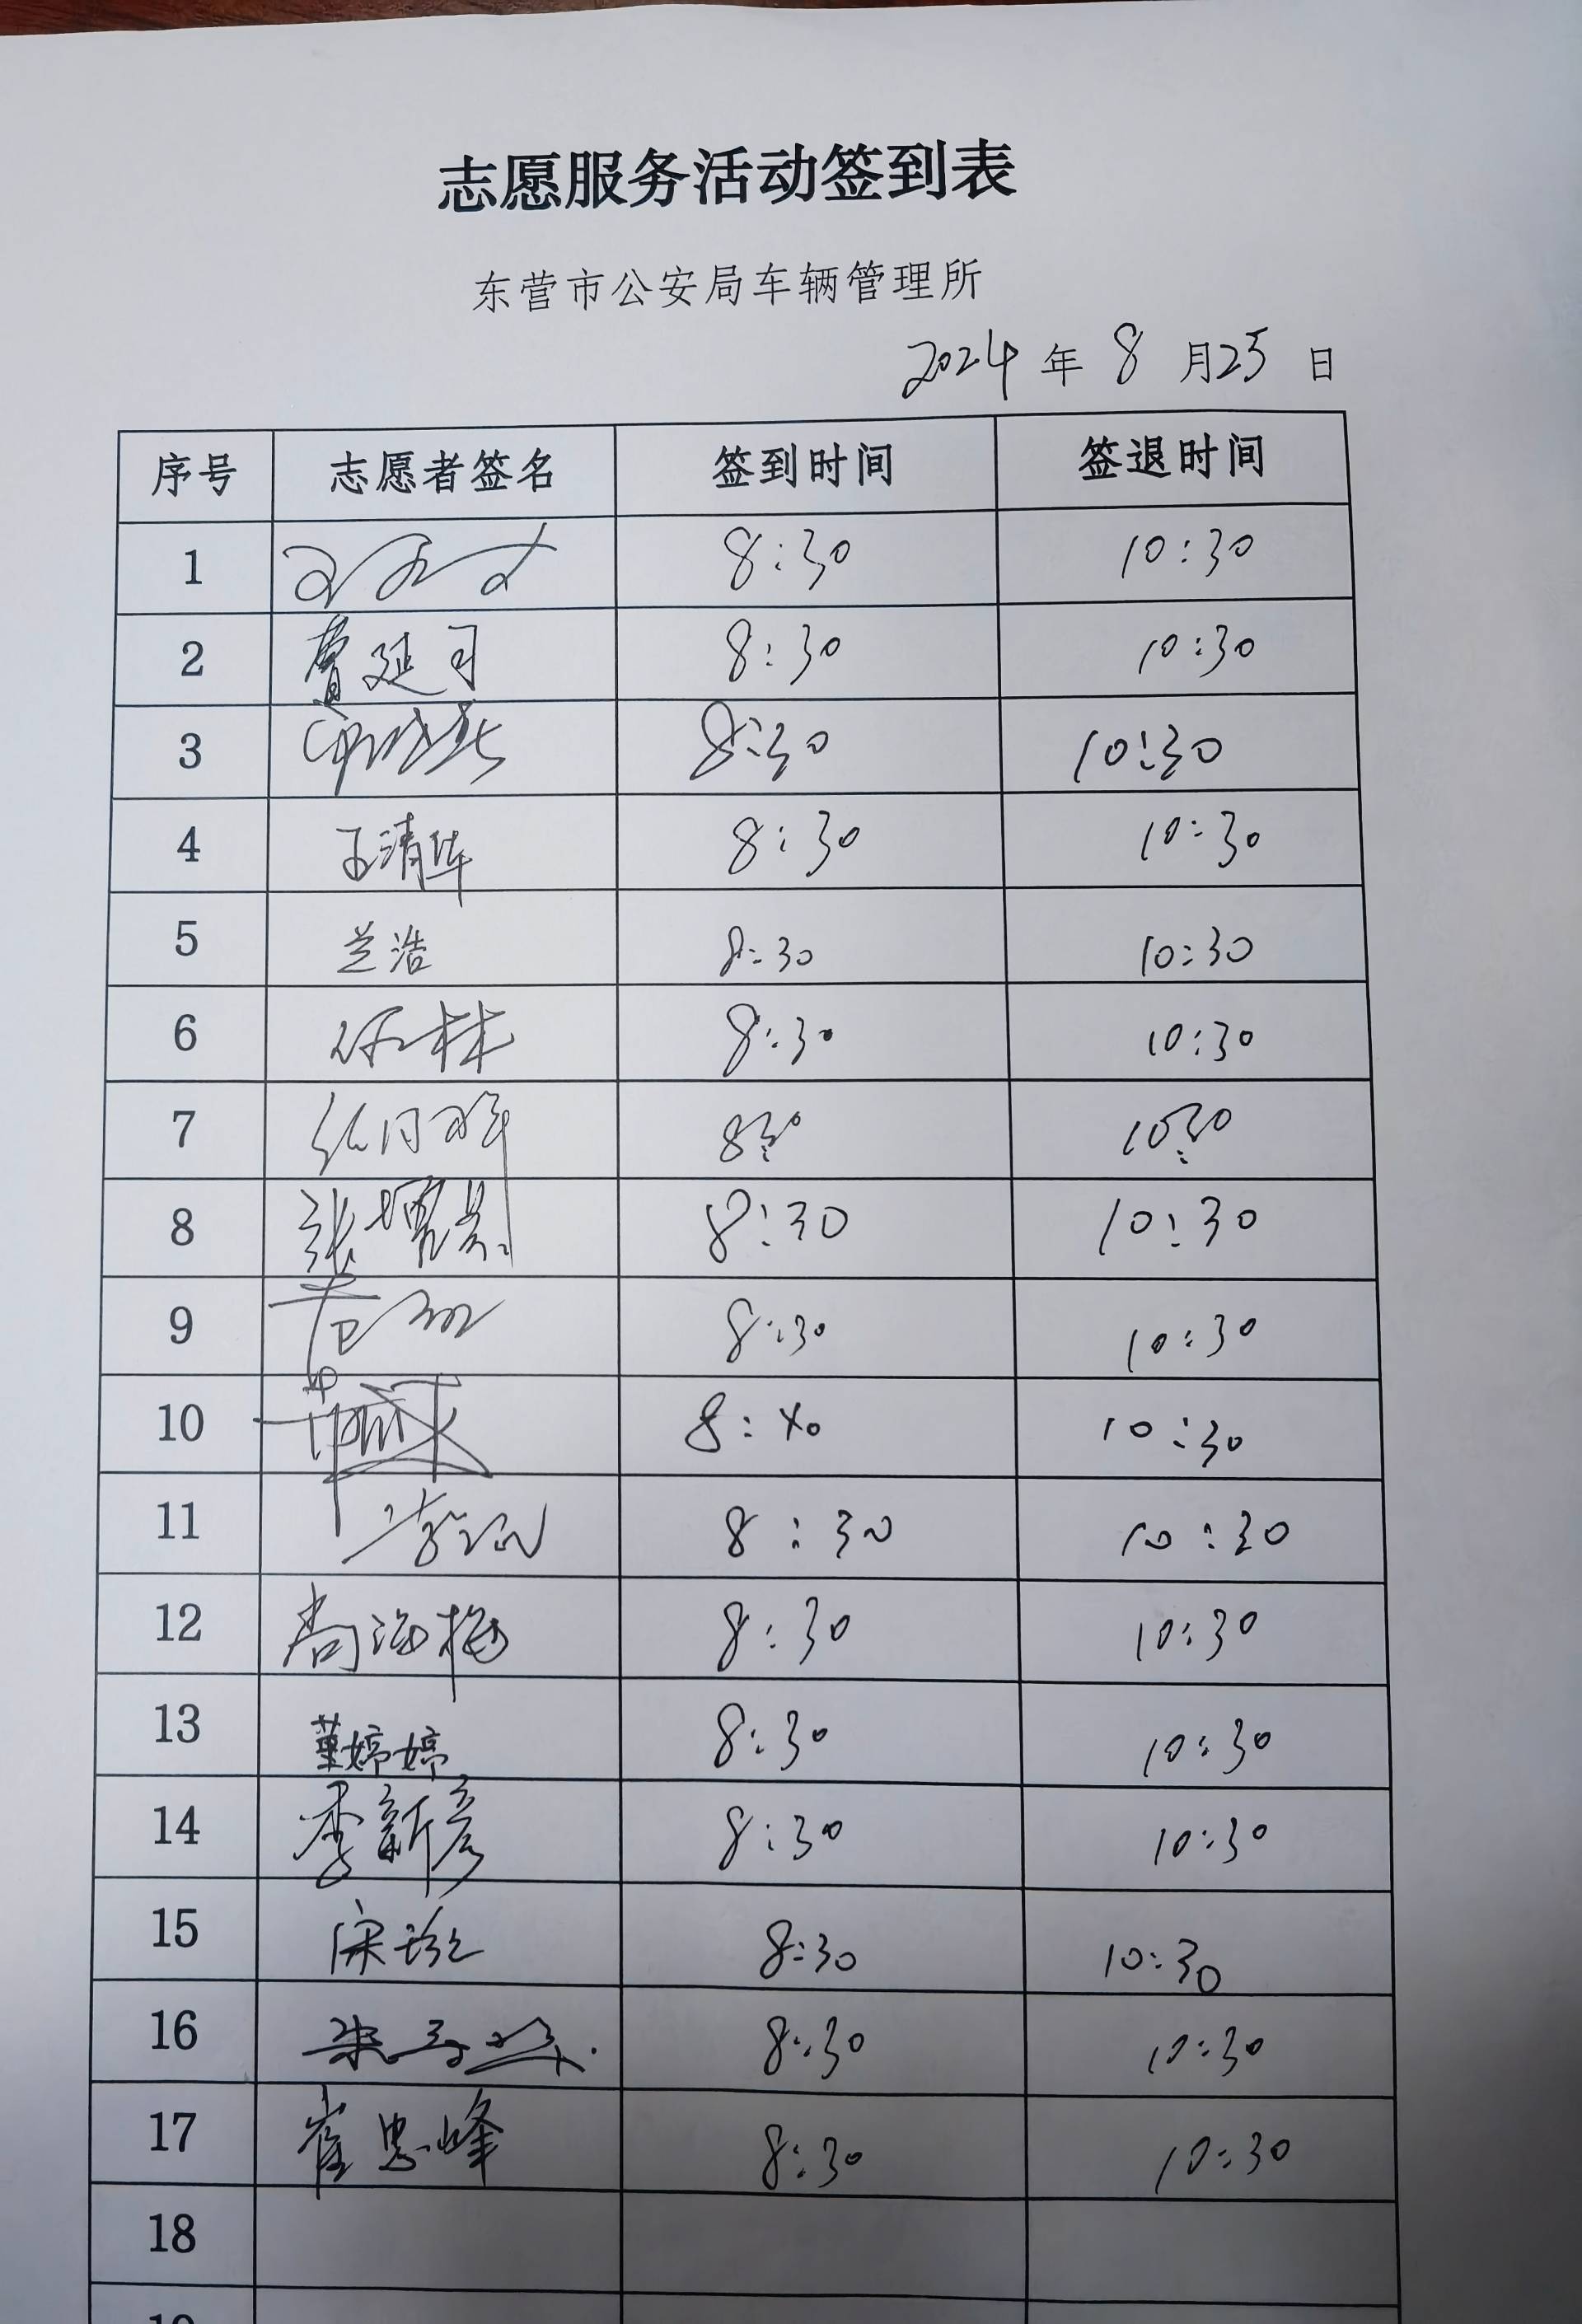 志愿服务活动签到表
东营市公安局车辆管理所
2024 年 8 月 25 日
序号 志愿者签名 签到时间 签退时间
1 8:30 10:30
2 曹延司 8:30 10:30
3 8:30 10:30
4 王清华 8:30 10:30
5 兰浩 8:30 10:30
6 林 8:30 10:30
7 8:30 10:30
8 张 8:30 10:30
9 8:30 10:30
10 8:40 10:30
11 8:30 10:30
12 尚海梅 8:30 10:30
13 董婷婷 8:30 10:30
14 李新彦 8:30 10:30
15 宋 8:30 10:30
16 8:30 10:30
17 崔忠峰 8:30 10:30
18